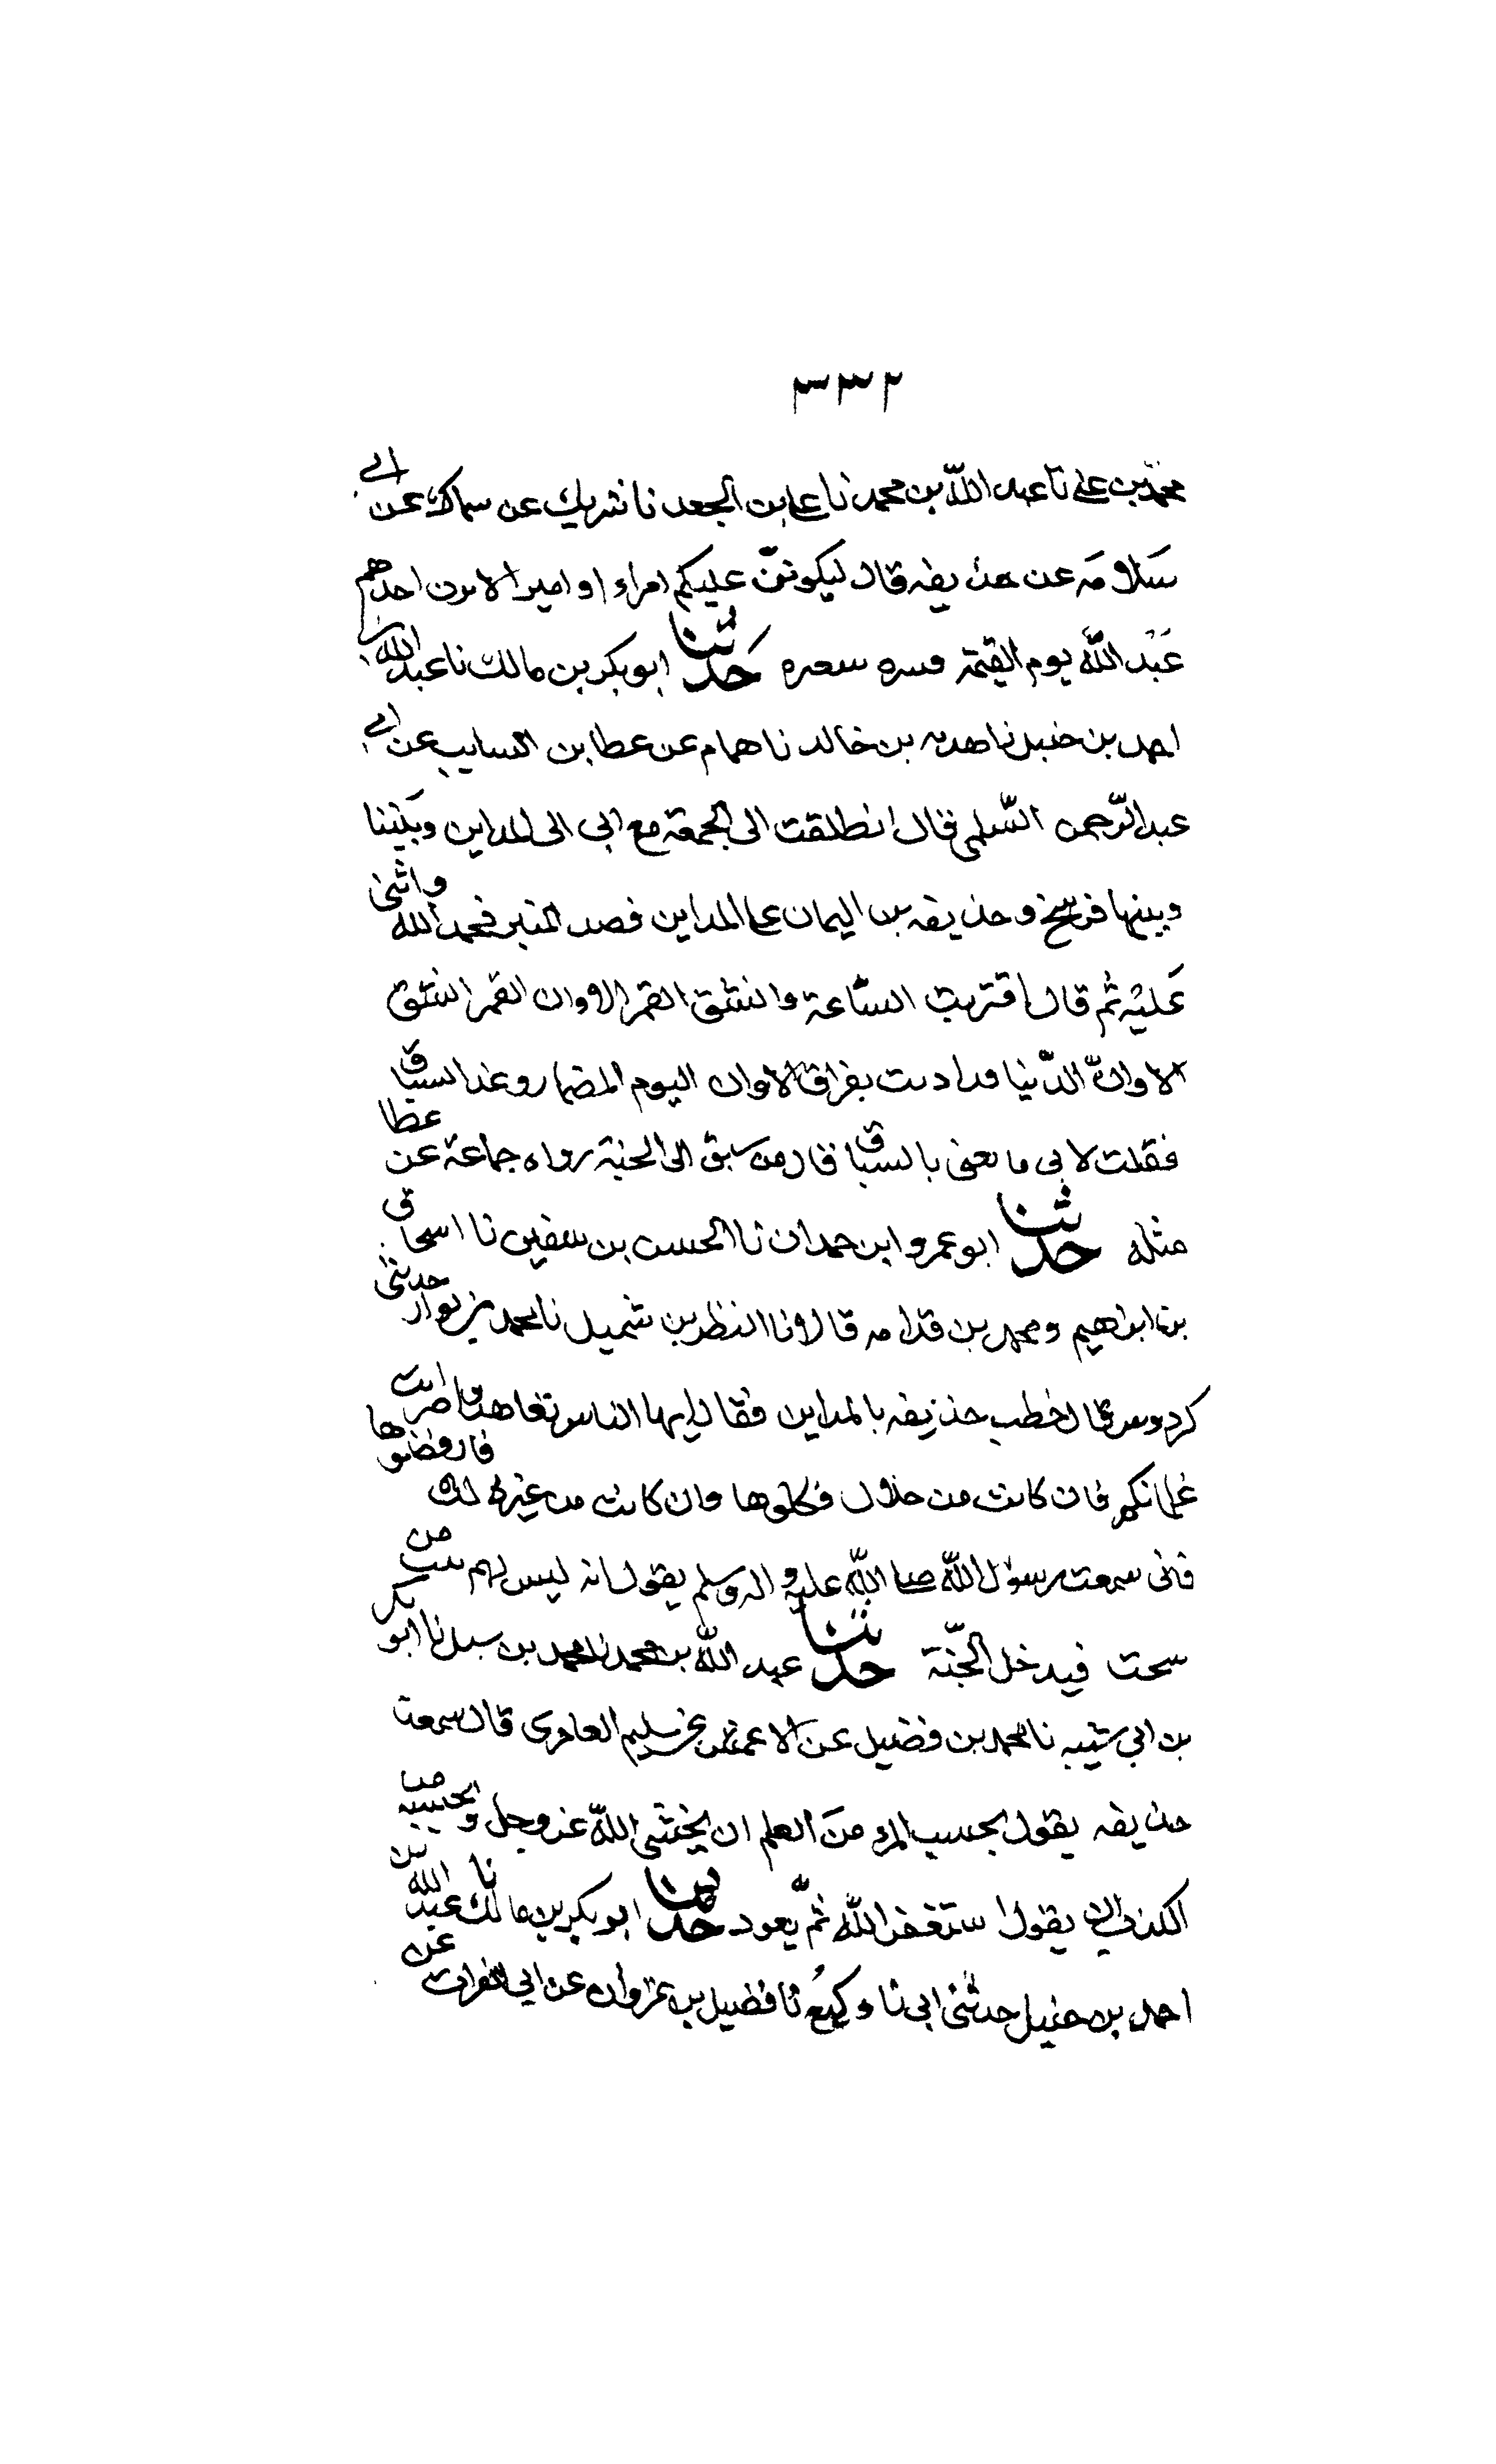 ٣٣٢
محمد بن علي نا عبد الله بن محمد نا علي بن الجعد نا شريك عن سماك عن ابي
سلامه عن حذيفه قال ليكونن عليكم امراء او امير لا يزن احدهم
عند الله يوم القيمة قشره شعيره حدثنا ابو بكر بن مالك نا عبد الله بن
احمد بن حنبل نا هدبه بن خالد نا همام عن عطا بن السايب عن ابي
عبد الرحمن السلمي قال انطلقت الى الجمعة مع ابي الى المداين وبيننا
وبينها فرسخ وحذيفه بن اليمان على المداين فصعد المنبر فحمد الله واثنى
عليه ثم قال اقتربت الساعة وانشق القمر الا وان القمر انشق
الا وان الدنيا قد اذنت بفراق الا وان اليوم المضمار وغدا السباق
فقلت لابي ما يعني بالسباق قال من سبق الى الجنة رواه جماعة عن عطا
مثله حدثنا ابو عمرو ابن حمدان نا الحسن بن سفين نا اسحاق
بن ابراهيم ومحمد بن قدامه قالا نا النظر بن شميل نا محمد بن بوار حدثني
كردوس قال خطب حذيفه بالمداين فقال ايها الناس تعاهدوا ضرايب
غلمانكم فان كانت من حلال فكلوها وان كانت من غير ذلك فارفضوها
فاني سمعت رسول الله صلى الله عليه واله وسلم يقول انه ليس لحم ينبت من
سحت فيدخل الجنة حدثنا عبد الله بن محمد نا محمد بن سبل نا ابو بكر
بن ابي شيبه نا محمد بن فضيل عن الاعمش عن سليم العامري قال سمعت
حذيفه يقول بحسب المرء من العلم ان يخشى الله عز وجل وبحسبه من
الكذب ان يقول استغفر الله ثم يعود حدثنا ابو بكر بن مالك نا عبد الله بن
احمد بن حنبل حدثني ابي نا وكيع نا فضيل بن غزوان عن ابي الفرات عن